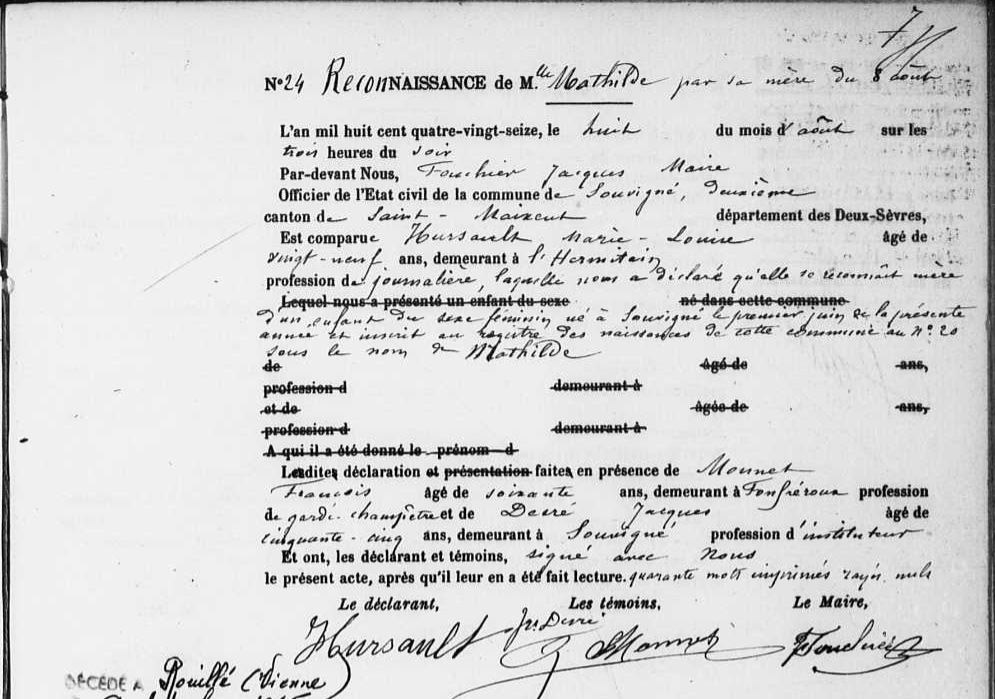 7
N° 24 ReconNAISSANCE de M.lle Mathilde par sa mère du 8 août
L'an mil huit cent quatre-vingt-seize, le huit du mois d'août sur les
trois heures du soir
Par-devant Nous, Fouchier Jacques Maire
Officier de l'Etat civil de la commune de Souvigné, deuxième
canton de Saint-Maixent département des Deux-Sèvres,
Est comparue Hursault Marie-Louise âgé de
vingt-neuf ans, demeurant à l'Hermitain
profession de journalière, laquelle nous a déclaré qu'elle se reconnaît mère
Lequel nous a présenté un enfant du sexe né dans cette commune
d'un enfant du sexe féminin né à Souvigné le premier juin de la présente
année et inscrit au registre des naissances de cette commune au N° 20
sous le nom de Mathilde
de âgé de ans,
profession d demeurant à
et de âgée de ans,
profession d demeurant à
A qui il a été donné le prénom d
Ladite déclaration et présentation faite, en présence de Monnet
François âgé de soixante ans, demeurant à Fonfréroux profession
de garde-champêtre et de Devré Jacques âgé de
cinquante-cinq ans, demeurant à Souvigné profession d'instituteur
Et ont, les déclarant et témoins, signé avec nous
le présent acte, après qu'il leur en a été fait lecture. quarante mots imprimés rayés nuls
Le déclarant, Les témoins, Le Maire,
Hursault Jes Devré Monnet Fouchier
DÉCÉDÉ A Rouillé (Vienne)